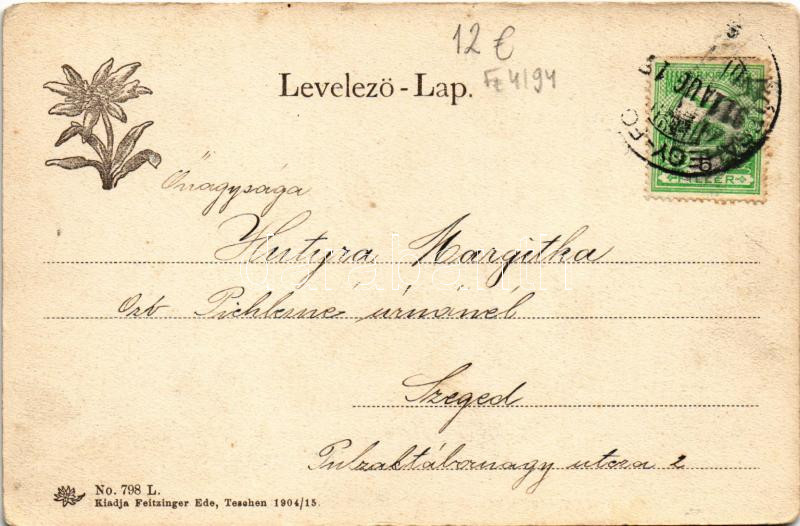 12 €
Fz 4/94
Levelező-Lap.
AUG
5
FILLÉR
Őnagysága
Hutyra Margitka
Ozv Pichlerné úrnőnél
Szeged
utcza 2
No. 798 L.
Kiadja Feitzinger Ede, Teschen 1904/15.